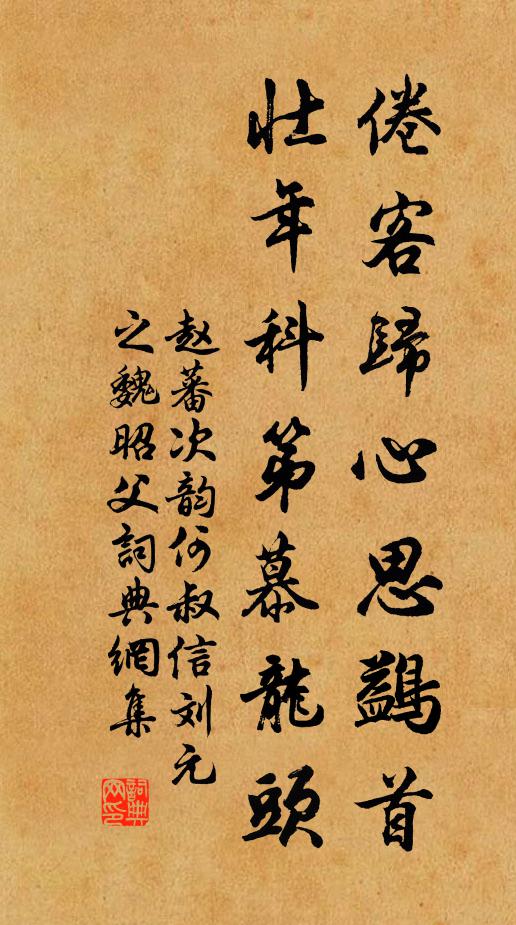 倦客歸心思鷁首
壯年科第慕龍頭
赵蕃次韵何叔信刘元
之魏昭父詞典網集
詞典網印